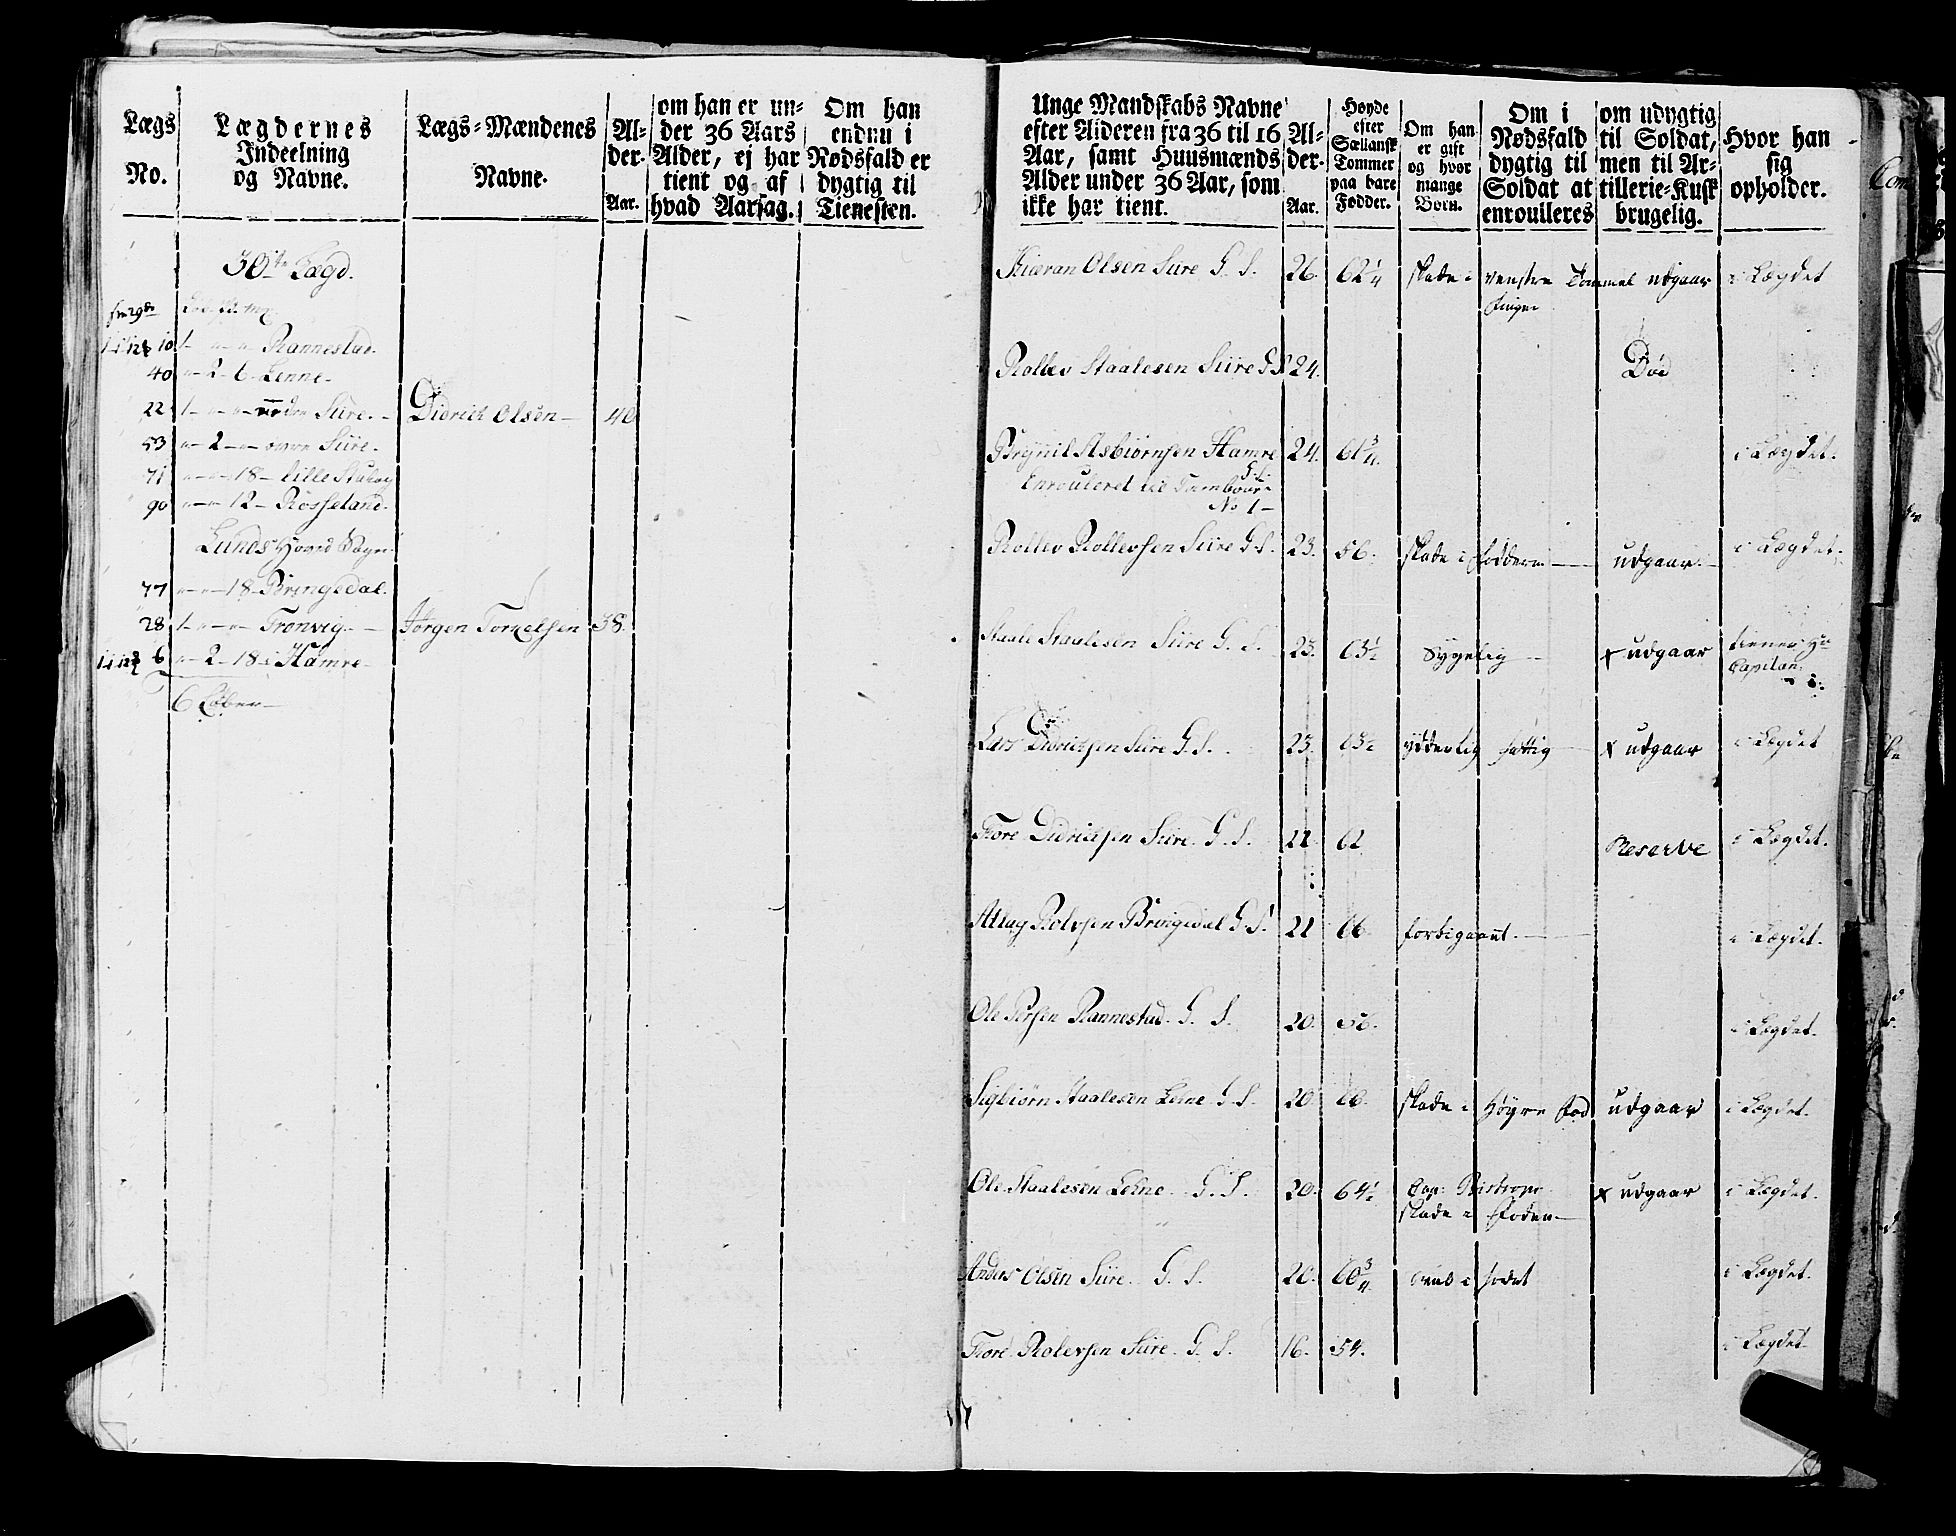 Lægs No.
Lægdernes Indeelning og Navne.
Lægs=Mændenes Navne.
Al-der. Aar.
om han er un=der 36 Aars Alder, ej har tient og af hvad Aarsag.
Om han endnu i Nødsfald er dygtig til Tienesten.
30te Lægd.
10 1 - " - " Rannestad.
40 " - 2 - 6 - Lenne.
22 1 - " - " nedre Siire. - Didrich Olsen - 40
53 " - 2 - " - øvre Siire.
71 " - " - 18 - Lille
90 " - " - 12 - Rosseland.
Lunds Hoved Sogn.
77 " - " - 18 - Bringedal.
28 1 - " - " - Tronvig. - Jørgen Torkelsen 38.
6 " - 2 - 18 - Hamre -
6 Løber -
Unge Mandskabs Navne efter Alderen fra 36 til 16 Aar, samt Huusmænds Alder under 36 Aar, som ikke har tient.
Al-der. Aar.
Høyde efter Sællansk Tommer paa bare Fødder.
Om han er gift og hvor mange Børn.
Om i Nødsfald dygtig til Soldat at enroulleres
om udygtig til Soldat, men til Ar=tillerie=Kusk brugelig.
Hvor han sig opholder.
Olsen Siire G. S. 26. 62 1/4 skade i venstre Tommel udgaar i Lægdet
finger
Rollev Staalesen Siire G S 24. Død
Brynil Asbiørnsen Hamre 24. 61 3/4. i Lægdet.
G. S.
Enrouleret til Tambour
No 1 -
Rollev Rollevsen Siire G. S. 23. 56. skade i fødderne - udgaar. i Lægdet.
Staale Staalesen Siire G. S. 23. 63 1/2 Sygelig - x udgaar tienner Hr
Capitain
Lars Didrichsen Siire G. S. 23. 63 1/2 ydderlig fattig x udgaar i Lægdet
Tore Didrichsen Siire. G. S. 22. 62 Reserve i Lægdet.
Aslag Rolevsen Bringedal G S. 21 66. forbigaaet. - i Lægdet.
Ole Persen Rannestad. G. S. 20. 56. i Lægdet.
Sigbiørn Staalesen Lenne G. S. 20. 66. skade i Høyre fod udgaar i Lægdet.
Ole Staalesen Lenne. G. S. 20. 64 1/2 x udgaar i Lægdet.
skade i foden -
Anders Olsen Siire. G. S. 20. 60 3/4 i fodet i Lægdet.
Tore Rolevsen Siire. G. S. 16. 54. i Lægdet.